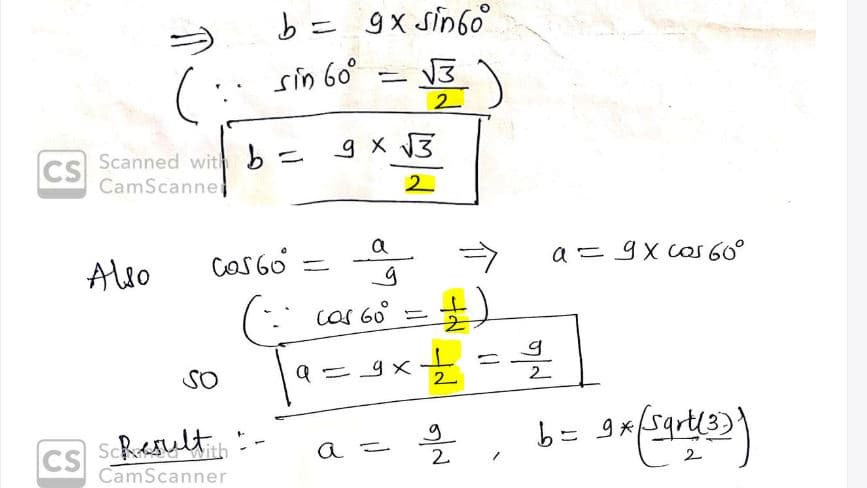 ⇒ b = 9 x sin60°
(∵ sin 60° = √3/2)
b = 9 x √3/2
CS Scanned with CamScanner
Also cos60° = a/9 ⇒ a = 9 x cos 60°
(∵ cos 60° = 1/2)
so a = 9 x 1/2 = 9/2
Result :- a = 9/2 , b = 9*(sqrt(3)/2)
CS Scanned with CamScanner